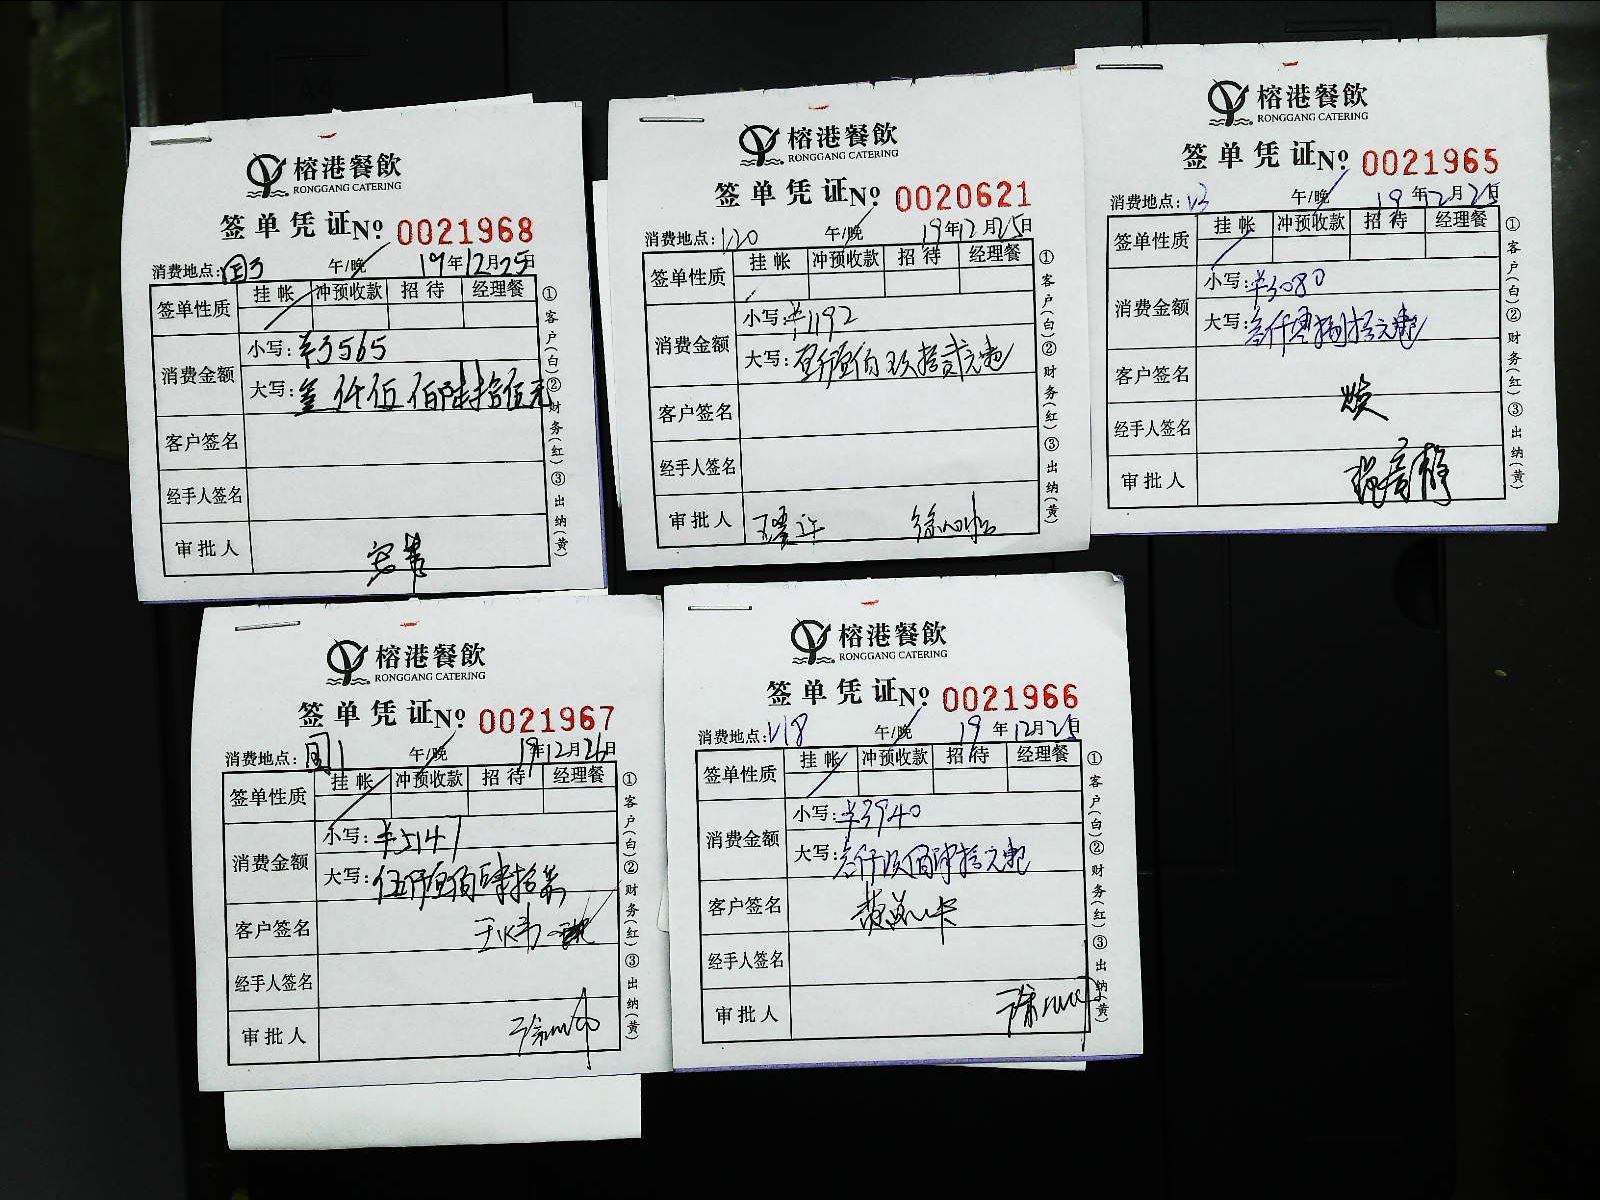 榕港餐飲
RONGGANG CATERING
签单凭证 No 0021968
消费地点: 国3 午/晚 19年12月25日
签单性质 挂帐 冲预收款 招待 经理餐
消费金额 小写: ¥3565
大写: 叁仟伍佰陆拾伍元
客户签名
经手人签名
审批人
①客户(白)②财务(红)③出纳(黄)
榕港餐飲
RONGGANG CATERING
签单凭证 No 0020621
消费地点: V20 午/晚 19年12月25日
签单性质 挂帐 冲预收款 招待 经理餐
消费金额 小写: ¥1192
大写: 壹仟壹佰玖拾贰元
客户签名
经手人签名
审批人
①客户(白)②财务(红)③出纳(黄)
榕港餐飲
RONGGANG CATERING
签单凭证 No 0021965
消费地点: V3 午/晚 19年12月25日
签单性质 挂帐 冲预收款 招待 经理餐
消费金额 小写: ¥3080
大写: 叁仟零捌拾元
客户签名
经手人签名
审批人
①客户(白)②财务(红)③出纳(黄)
榕港餐飲
RONGGANG CATERING
签单凭证 No 0021967
消费地点: 国1 午/晚 19年12月26日
签单性质 挂帐 冲预收款 招待 经理餐
消费金额 小写: ¥5141
大写: 伍仟壹佰肆拾
客户签名
经手人签名
审批人
①客户(白)②财务(红)③出纳(黄)
榕港餐飲
RONGGANG CATERING
签单凭证 No 0021966
消费地点: V18 午/晚 19年12月25日
签单性质 挂帐 冲预收款 招待 经理餐
消费金额 小写: ¥3940
大写: 叁仟玖佰肆拾元
客户签名
经手人签名
审批人
①客户(白)②财务(红)③出纳(黄)